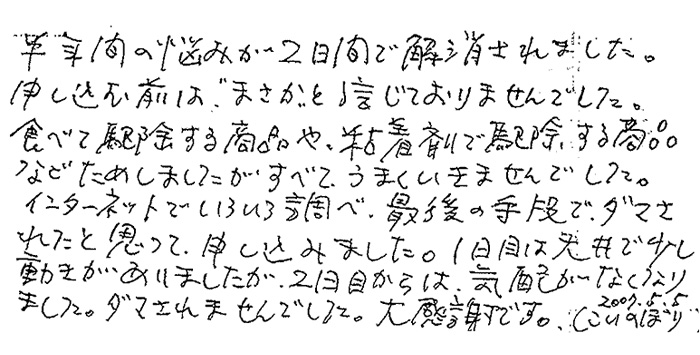 半年間の悩みが2日間で解消されました。
申し込む前は、"まさか"と信じておりませんでした。
食べて駆除する商品や、粘着剤で駆除する商品
などためしましたがすべて、うまくいきませんでした。
インターネットでいろいろ調べ、最後の手段で、ダマさ
れたと思って、申し込みました。1日目は天井で少し
動きがありましたが、2日目からは、気配がなくなり
ました。ダマされませんでした。大感謝です。(こいのぼり
2007.5.5